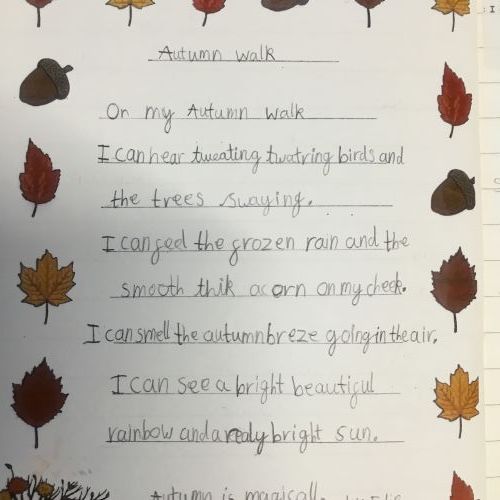 Autumn walk
On my Autumn walk
I can hear tweating twatring birds and
the trees swaying.
I can feel the frozen rain and the
smooth thik acorn on my cheek.
I can smell the autumn breze going in the air.
I can see a bright beautiful
rainbow and a realy bright sun.
Autumn is magical